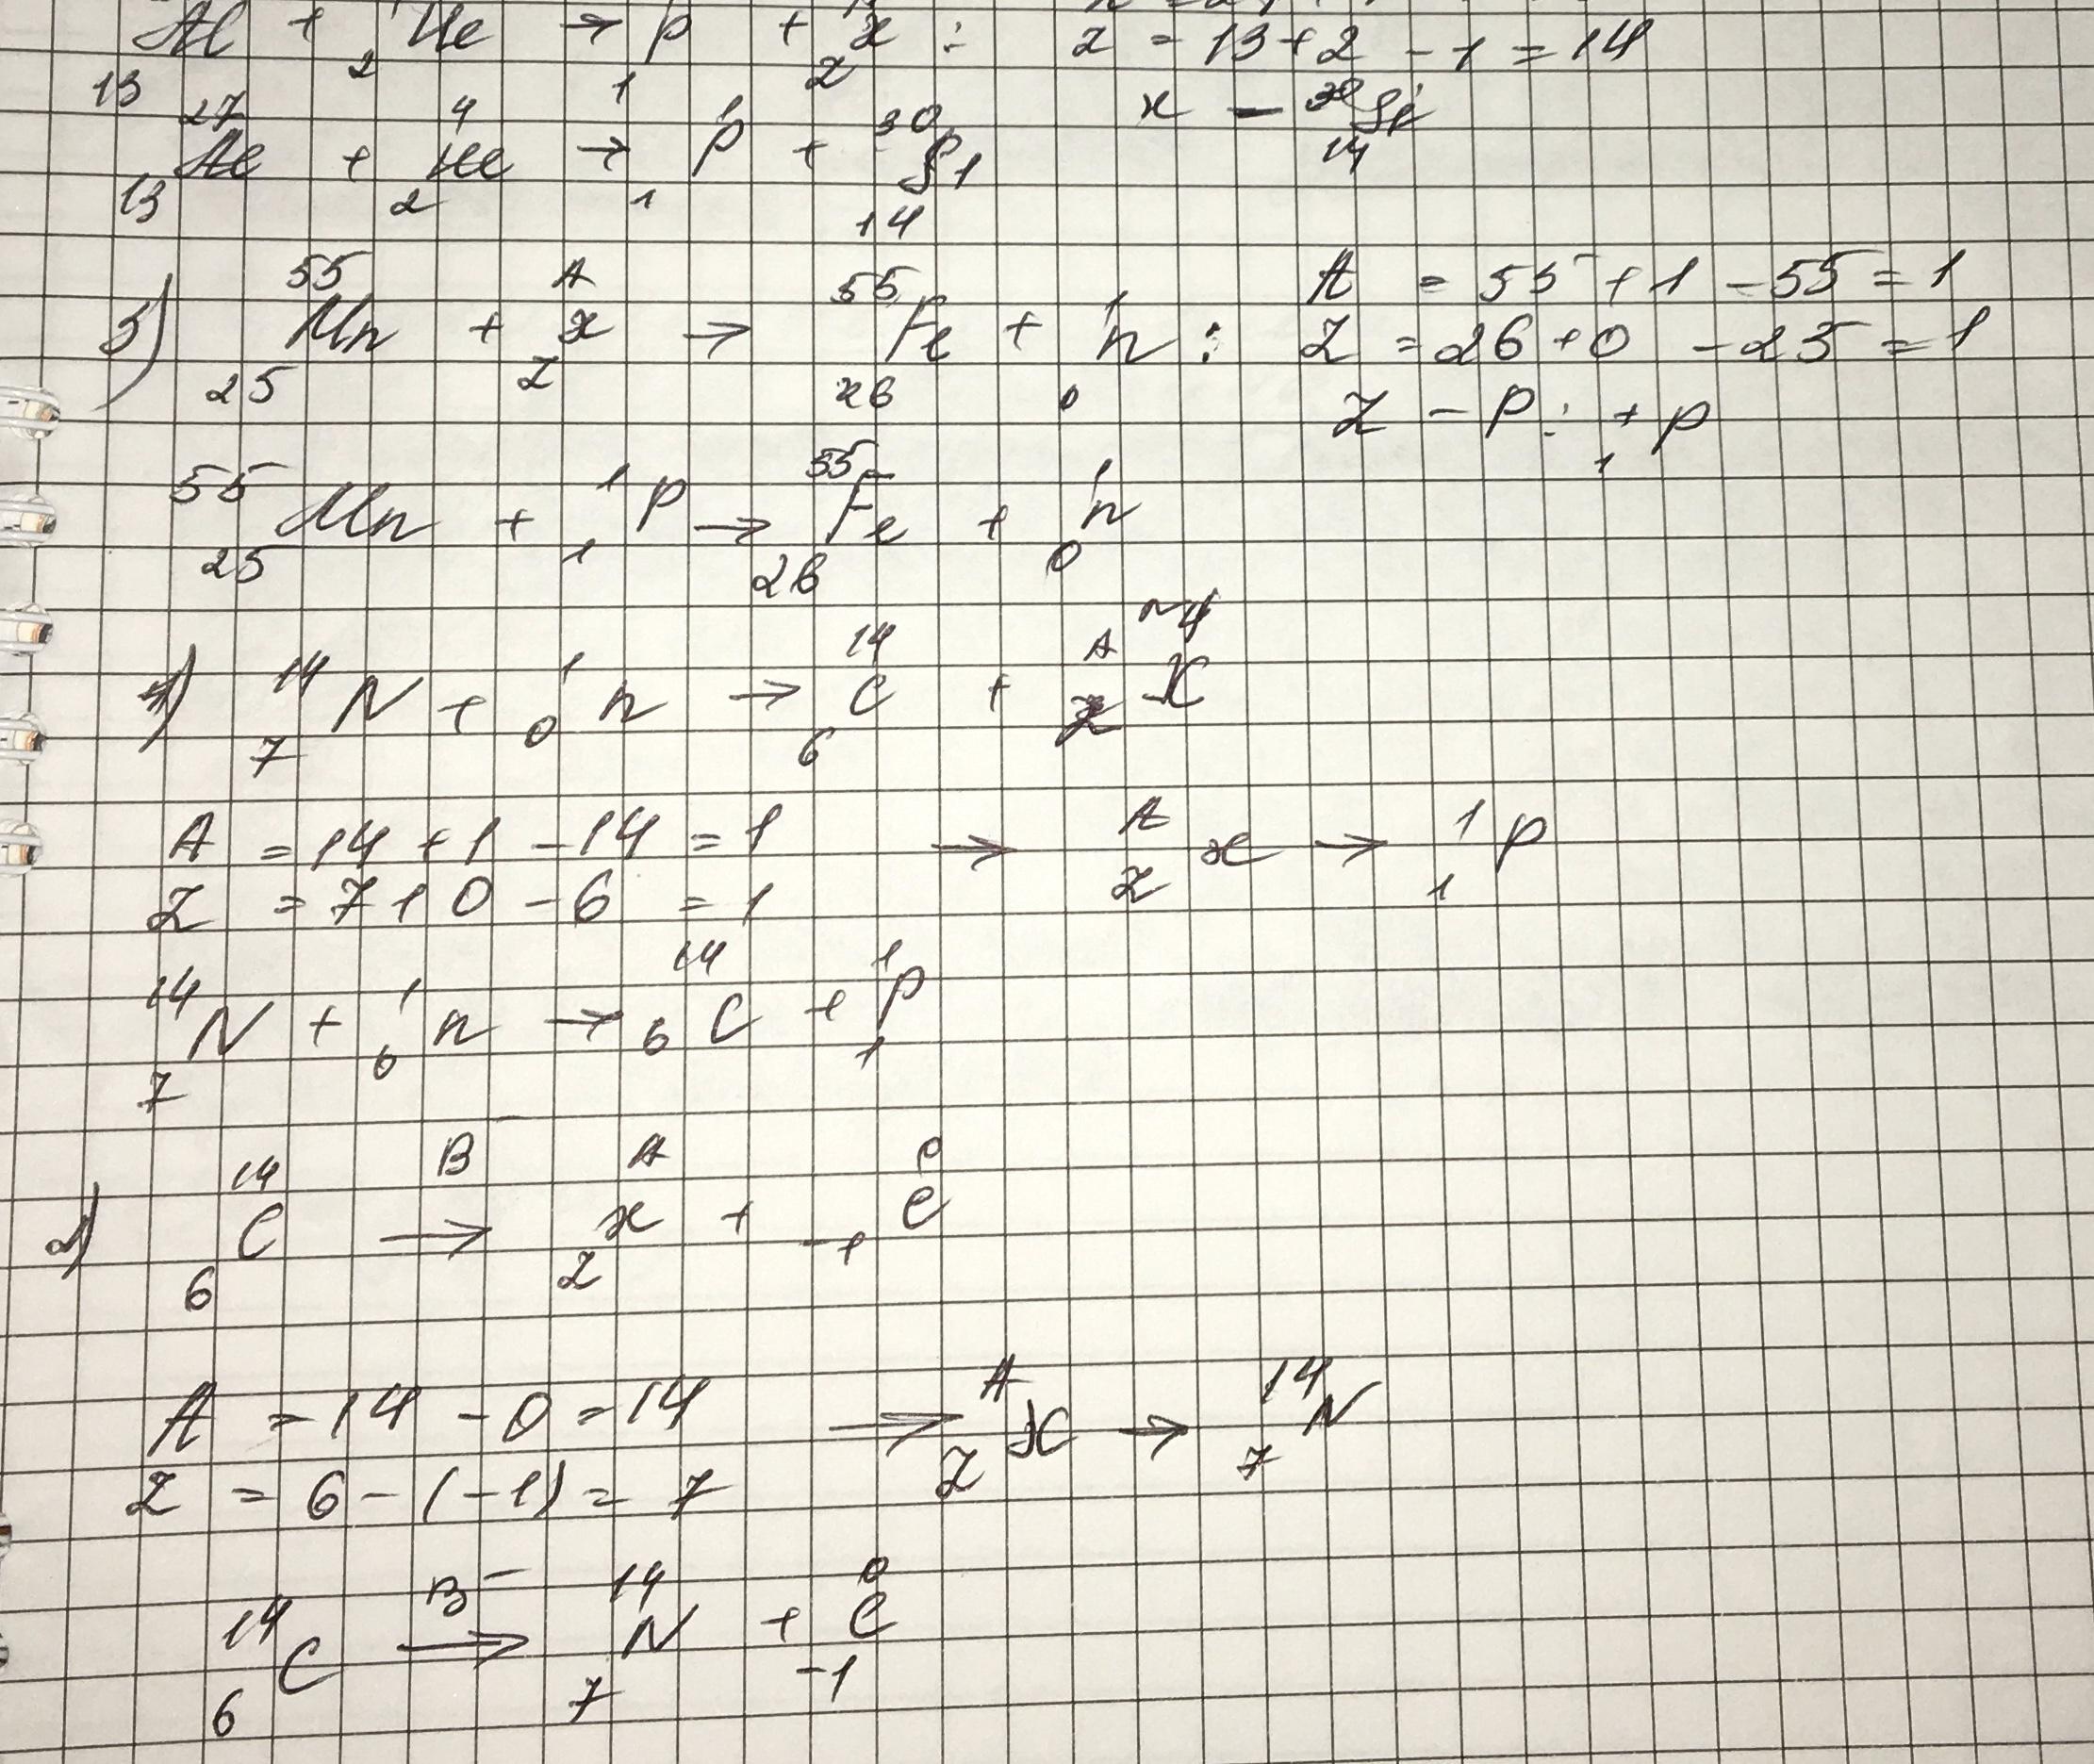 Al + ₂He → p + x : z = 13 + 2 - 1 = 14
13 2 1 z
27 4 1 30 x — ³⁰Si
Al + He → p + Si 14
13 2 1 14
55 A 55 1 A = 55 + 1 - 55 = 1
Mn + x → Fe + n : Z = 26 + 0 - 25 = 1
25 Z 26 0 Z - p : + p
1
55 1 55 1
Mn + p → Fe + n
25 1 26 0
14 1 14 A
N + n → C + X
7 0 6 Z
A = 14 + 1 - 14 = 1 → A x → 1 p
Z = 7 + 0 - 6 = 1 Z 1
14 1 14 1
N + n → C + p
7 0 6 1
14 B⁻ A 0
d) C → x + e
6 Z -1
A = 14 - 0 = 14 → A X → 14 N
Z = 6 - (-1) = 7 Z 7
14 B⁻ 14 0
C → N + e
6 7 -1